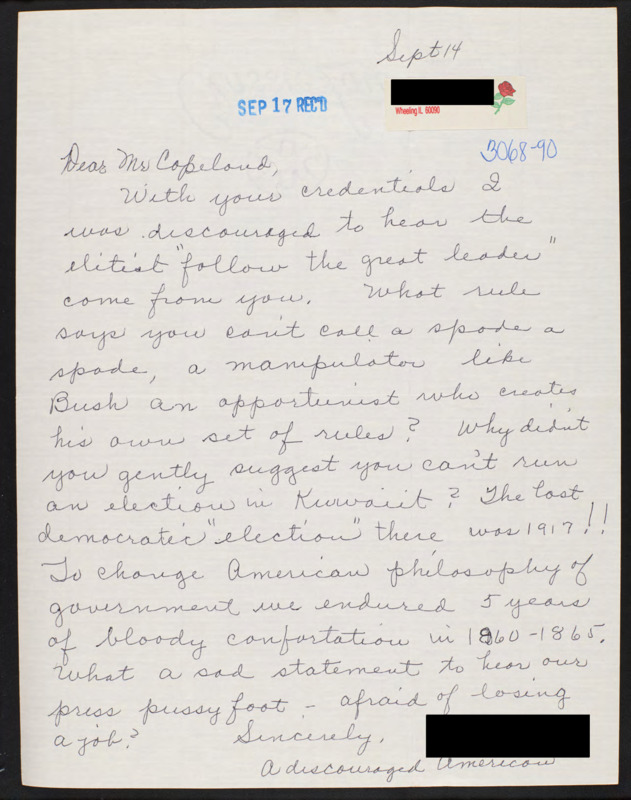 Sept 14
Wheeling IL 60090
SEP 17 REC'D
3068-90
Dear Mr Copeland,
With your credentials I
was discouraged to hear the
elitist "follow the great leader"
come from you. What rule
says you can't call a spade a
spade, a manipulator like
Bush an opportunist who creates
his own set of rules? Why didn't
you gently suggest you can't run
an election in Kuwaiit? The last
democratic "election" there was 1917!!
To change American philosophy of
government we endured 5 years
of bloody confortation in 1860-1865.
What a sad statement to hear our
press pussy foot - afraid of losing
a job?
Sincerely,
A discouraged American